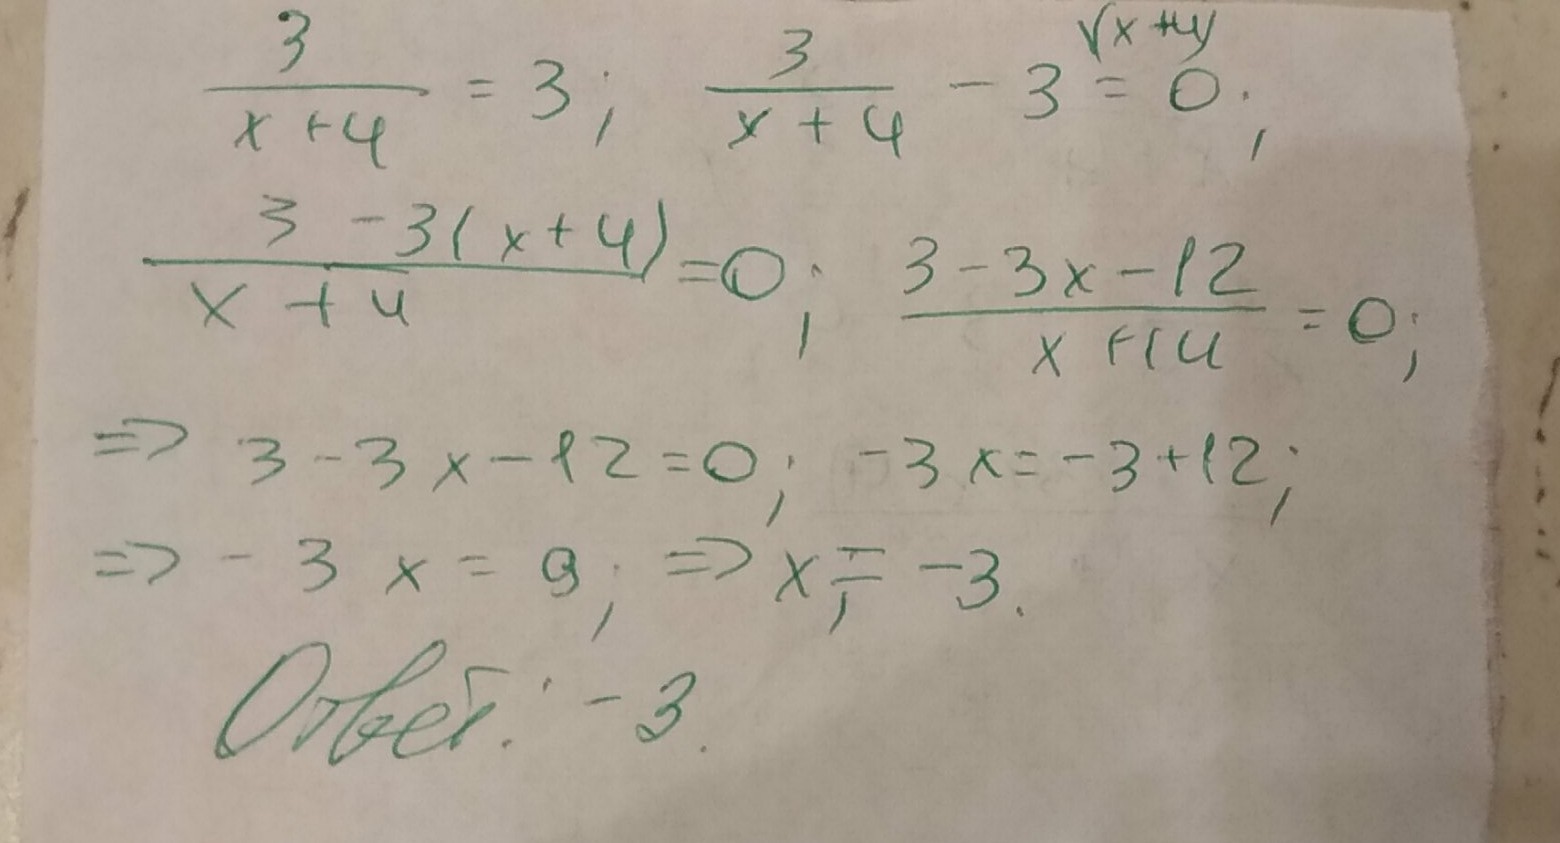 3/(x+4) = 3; 3/(x+4) - 3 \(x+4) = 0;
(3 - 3(x+4))/(x+4) = 0; (3-3x-12)/(x+14) = 0;
=> 3-3x-12=0; -3x=-3+12;
=> -3x = 9; => x = -3.
Ответ: -3.